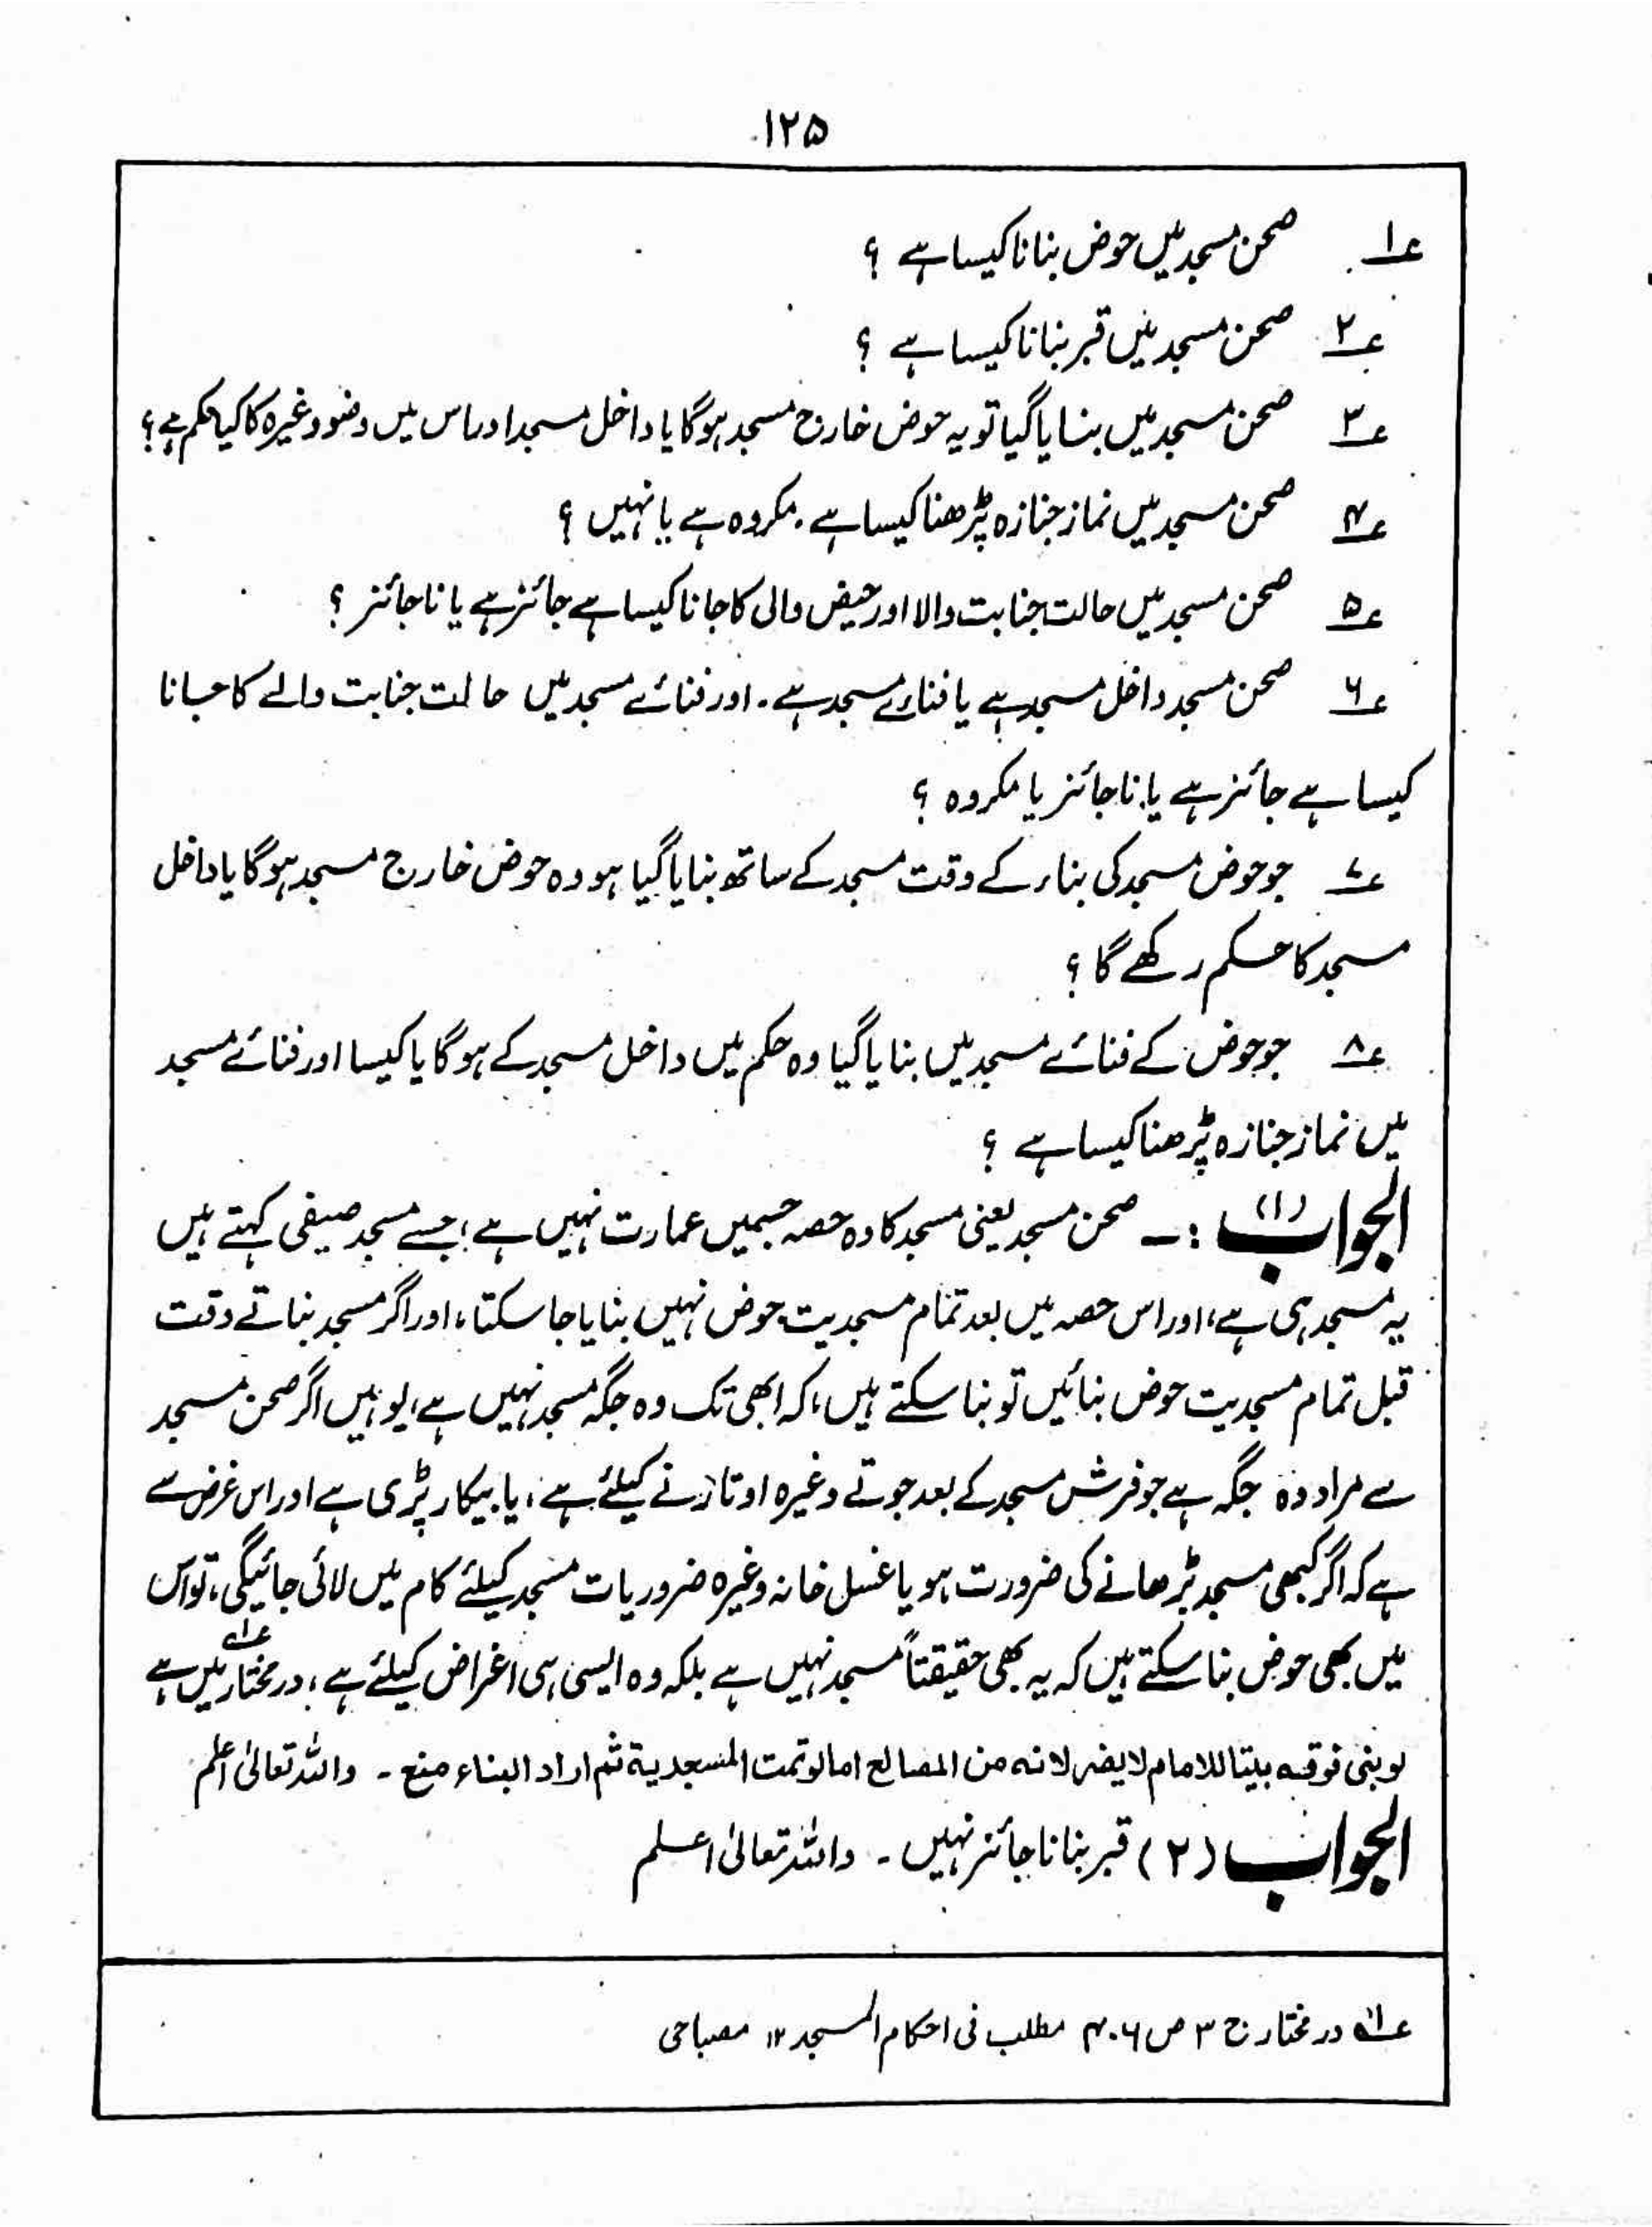 ۱۲۵
؏۱ صحن مسجد میں حوض بنانا کیسا ہے ؟
؏۲ صحن مسجد میں قبر بنانا کیسا ہے ؟
؏۳ صحن مسجد میں بنایا گیا تو یہ حوض خارج مسجد ہوگا یا داخل مسجد اور اس میں وضو وغیرہ کا کیا حکم ہے؟
؏۴ صحن مسجد میں نماز جنازہ پڑھنا کیسا ہے۔ مکروہ ہے یا نہیں ؟
؏۵ صحن مسجد میں حالت جنابت والا اور حیض والی کا جانا کیسا ہے جائز ہے یا ناجائز ؟
؏۶ صحن مسجد داخل مسجد ہے یا فنائے مسجد ہے۔ اور فنائے مسجد میں حالت جنابت والے کا جانا
کیسا ہے جائز ہے یا ناجائز یا مکروہ ؟
؏۷ جو حوض مسجد کی بناء کے وقت مسجد کے ساتھ بنایا گیا ہو وہ حوض خارج مسجد ہوگا یا داخل
مسجد کا حکم رکھے گا ؟
؏۸ جو حوض کے فنائے مسجد میں بنایا گیا وہ حکم میں داخل مسجد کے ہوگا یا کیسا اور فنائے مسجد
میں نماز جنازہ پڑھنا کیسا ہے ؟
الجواب (۱) :۔ صحن مسجد یعنی مسجد کا وہ حصہ جسمیں عمارت نہیں ہے، جسے مسجد صیفی کہتے ہیں
یہ مسجد ہی ہے، اور اس حصہ میں بعد تمام مسجدیت حوض نہیں بنایا جا سکتا، اور اگر مسجد بناتے وقت
قبل تمام مسجدیت حوض بنائیں تو بنا سکتے ہیں، کہ ابھی تک وہ جگہ مسجد نہیں ہے، یوہیں اگر صحن مسجد
سے مراد وہ جگہ ہے جو فرش مسجد کے بعد جوتے وغیرہ اوتارنے کیلئے ہے، یا بیکار پڑی ہے اور اس غرض سے
ہے کہ اگر کبھی مسجد بڑھانے کی ضرورت ہو یا غسل خانہ وغیرہ ضروریات مسجد کیلئے کام میں لائی جائیگی، تو اس
میں بھی حوض بنا سکتے ہیں کہ یہ بھی حقیقتاً مسجد نہیں ہے بلکہ وہ ایسی ہی اغراض کیلئے ہے، درمختار؏۱ میں ہے
لو بنی فوقہ بیتا للامام لا یضر لانہ من المصالح اما لو تمت المسجدیۃ ثم اراد البناء منع ۔ واللہ تعالیٰ اعلم
الجواب (۲) قبر بنانا جائز نہیں ۔ واللہ تعالیٰ اعلم
؏۱ در مختار ج ۳ ص ۴۰۶ مطلب فی احکام المسجد ۱۲ مصباحی